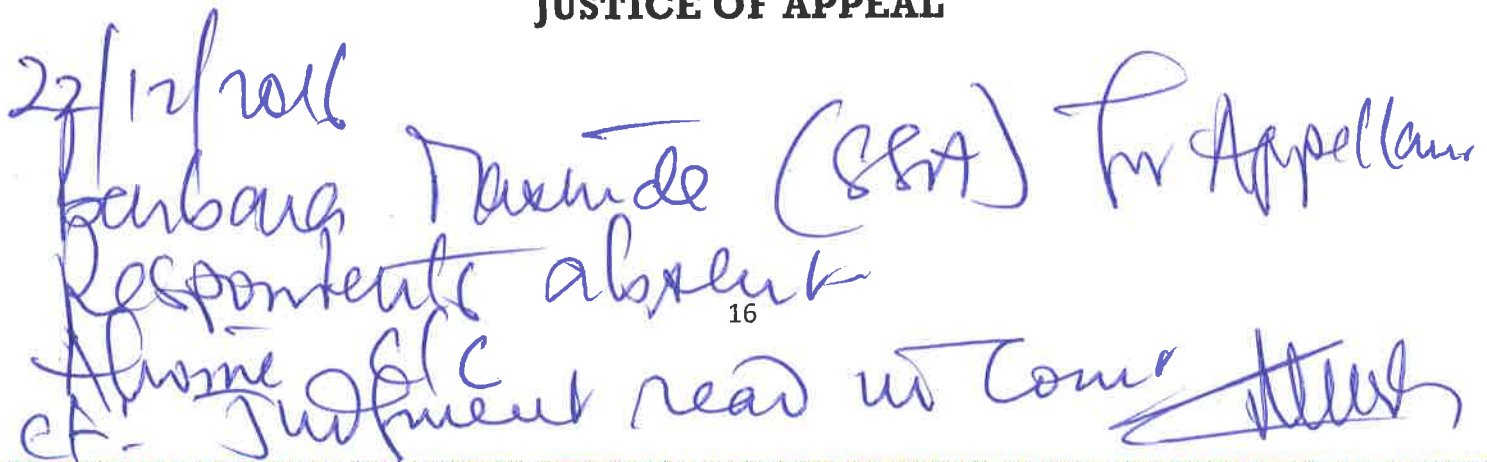 JUSTICE OF APPEAL
22/12/2016
Barbara (SSA) for Appellant
Respondents absent
16
C/C
Ct:- Judgment read in Court